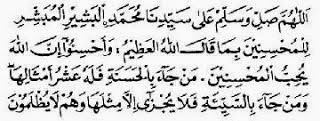 اَللّٰهُمَّ صَلِّ وَسَلِّمْ عَلٰى سَيِّدِنَا مُحَمَّدٍ اَلْبَشِيْرِ الْمُبَشِّرِ
لِلْمُحْسِنِيْنَ بِمَا قَالَ اللهُ الْعَظِيْمُ : وَاَحْسِنُوْا اِنَّ اللهَ
يُحِبُّ الْمُحْسِنِيْنَ . مَنْ جَاءَ بِالْحَسَنَةِ فَلَهُ عَشْرُ اَمْثَالِهَا
وَمَنْ جَاءَ بِالسَّيِّئَةِ فَلَا يُجْزٰى اِلَّا مِثْلَهَا وَهُمْ لَا يُظْلَمُوْنَ